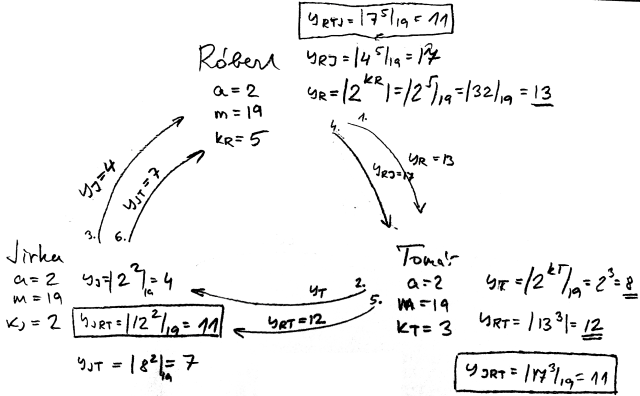 y_RTJ = |7^5|_19 = 11
Róbert
y_RJ = |4^5|_19 = 17
a = 2
m = 19
k_R = 5
y_R = |2^kR| = |2^5|_19 = |32|_19 = 13
4. 1.
y_R = 13
y_RJ = 17
y_J = 4
y_JT = 7
3. 6.
Jirka
a = 2
m = 19
k_J = 2
y_J = |2^2|_19 = 4
y_JRT = |12^2|_19 = 11
y_JT = |8^2|_19 = 7
y_T 2.
y_RT = 12 5.
Tomáš
a = 2
m = 19
k_T = 3
y_T = |2^kT|_19 = 2^3 = 8
y_RT = |13^3| = 12
y_JRT = |17^3|_19 = 11